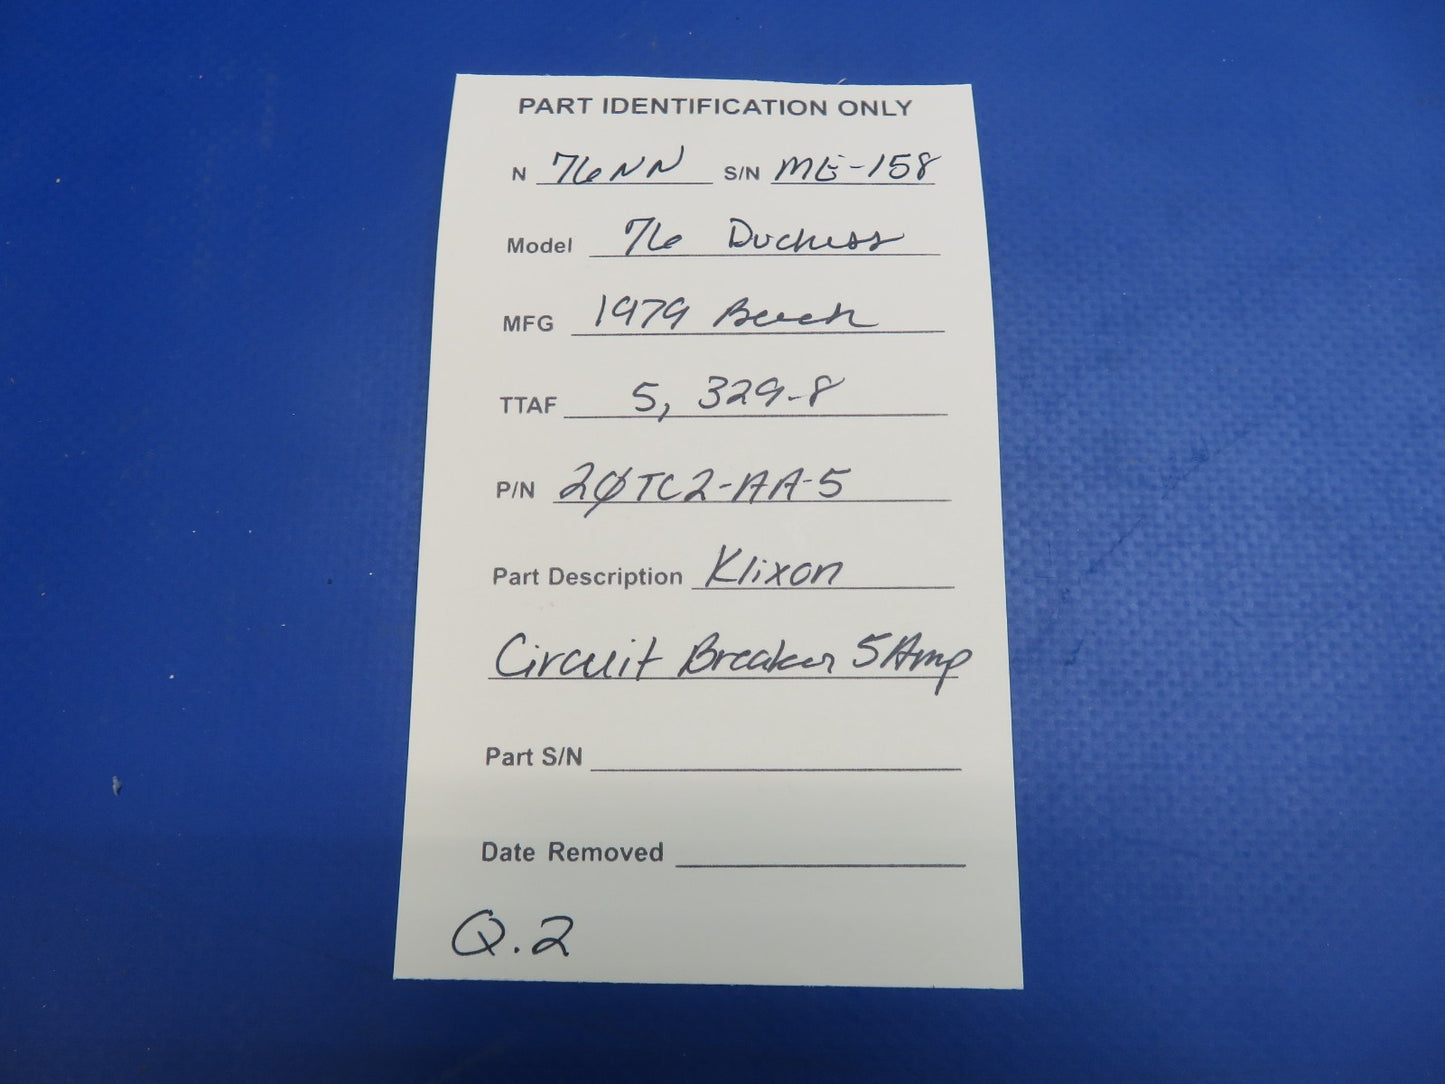 PART IDENTIFICATION ONLY
N 76NN S/N ME-158
Model 76 Duchess
MFG 1979 Beech
TTAF 5,329.8
P/N 20TC2-AA-5
Part Description Klixon
Circuit Breaker 5Amp
Part S/N
Date Removed
Q.2